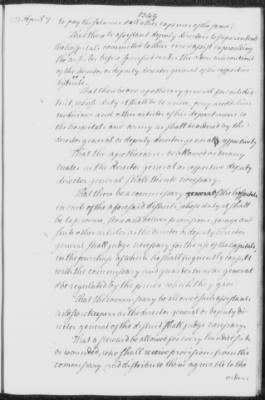 1777 April 7
to pay the balance & all other expences of the same:
That there be assistant deputy directors to superintend
the hospitals committed to their care,
the articles before specified under the orders and controul
of the director or deputy director general of the respective
districts
That there be one apothecary general for each dis-
trict, whose duty it shall be to receive, prepare, & deliver
medicines and other articles of his department to
the hospitals and army as shall be ordered by the
director general or deputy director general respectively
That the apothecaries be allowed as many
mates as the director general or respective deputy
director general shall think necessary
That there be a commissary general of the hospitals
in each of the aforesaid districts, whose duty it shall
be to procure, store and deliver provisions, forage and
such other articles as the director or deputy director
general shall judge necessary for the use of the hospitals,
in the purchase of which he shall frequently consult
with the commissary and quarter master general
& be regulated by the prices which they give
That the commissary be allowed such assistants
and store keepers as the director general or deputy di-
rector general of the district shall judge necessary.
That a steward be allowed for every hundred sick
or wounded, who shall receive provisions from the
commissary and distribute them agreeable to the